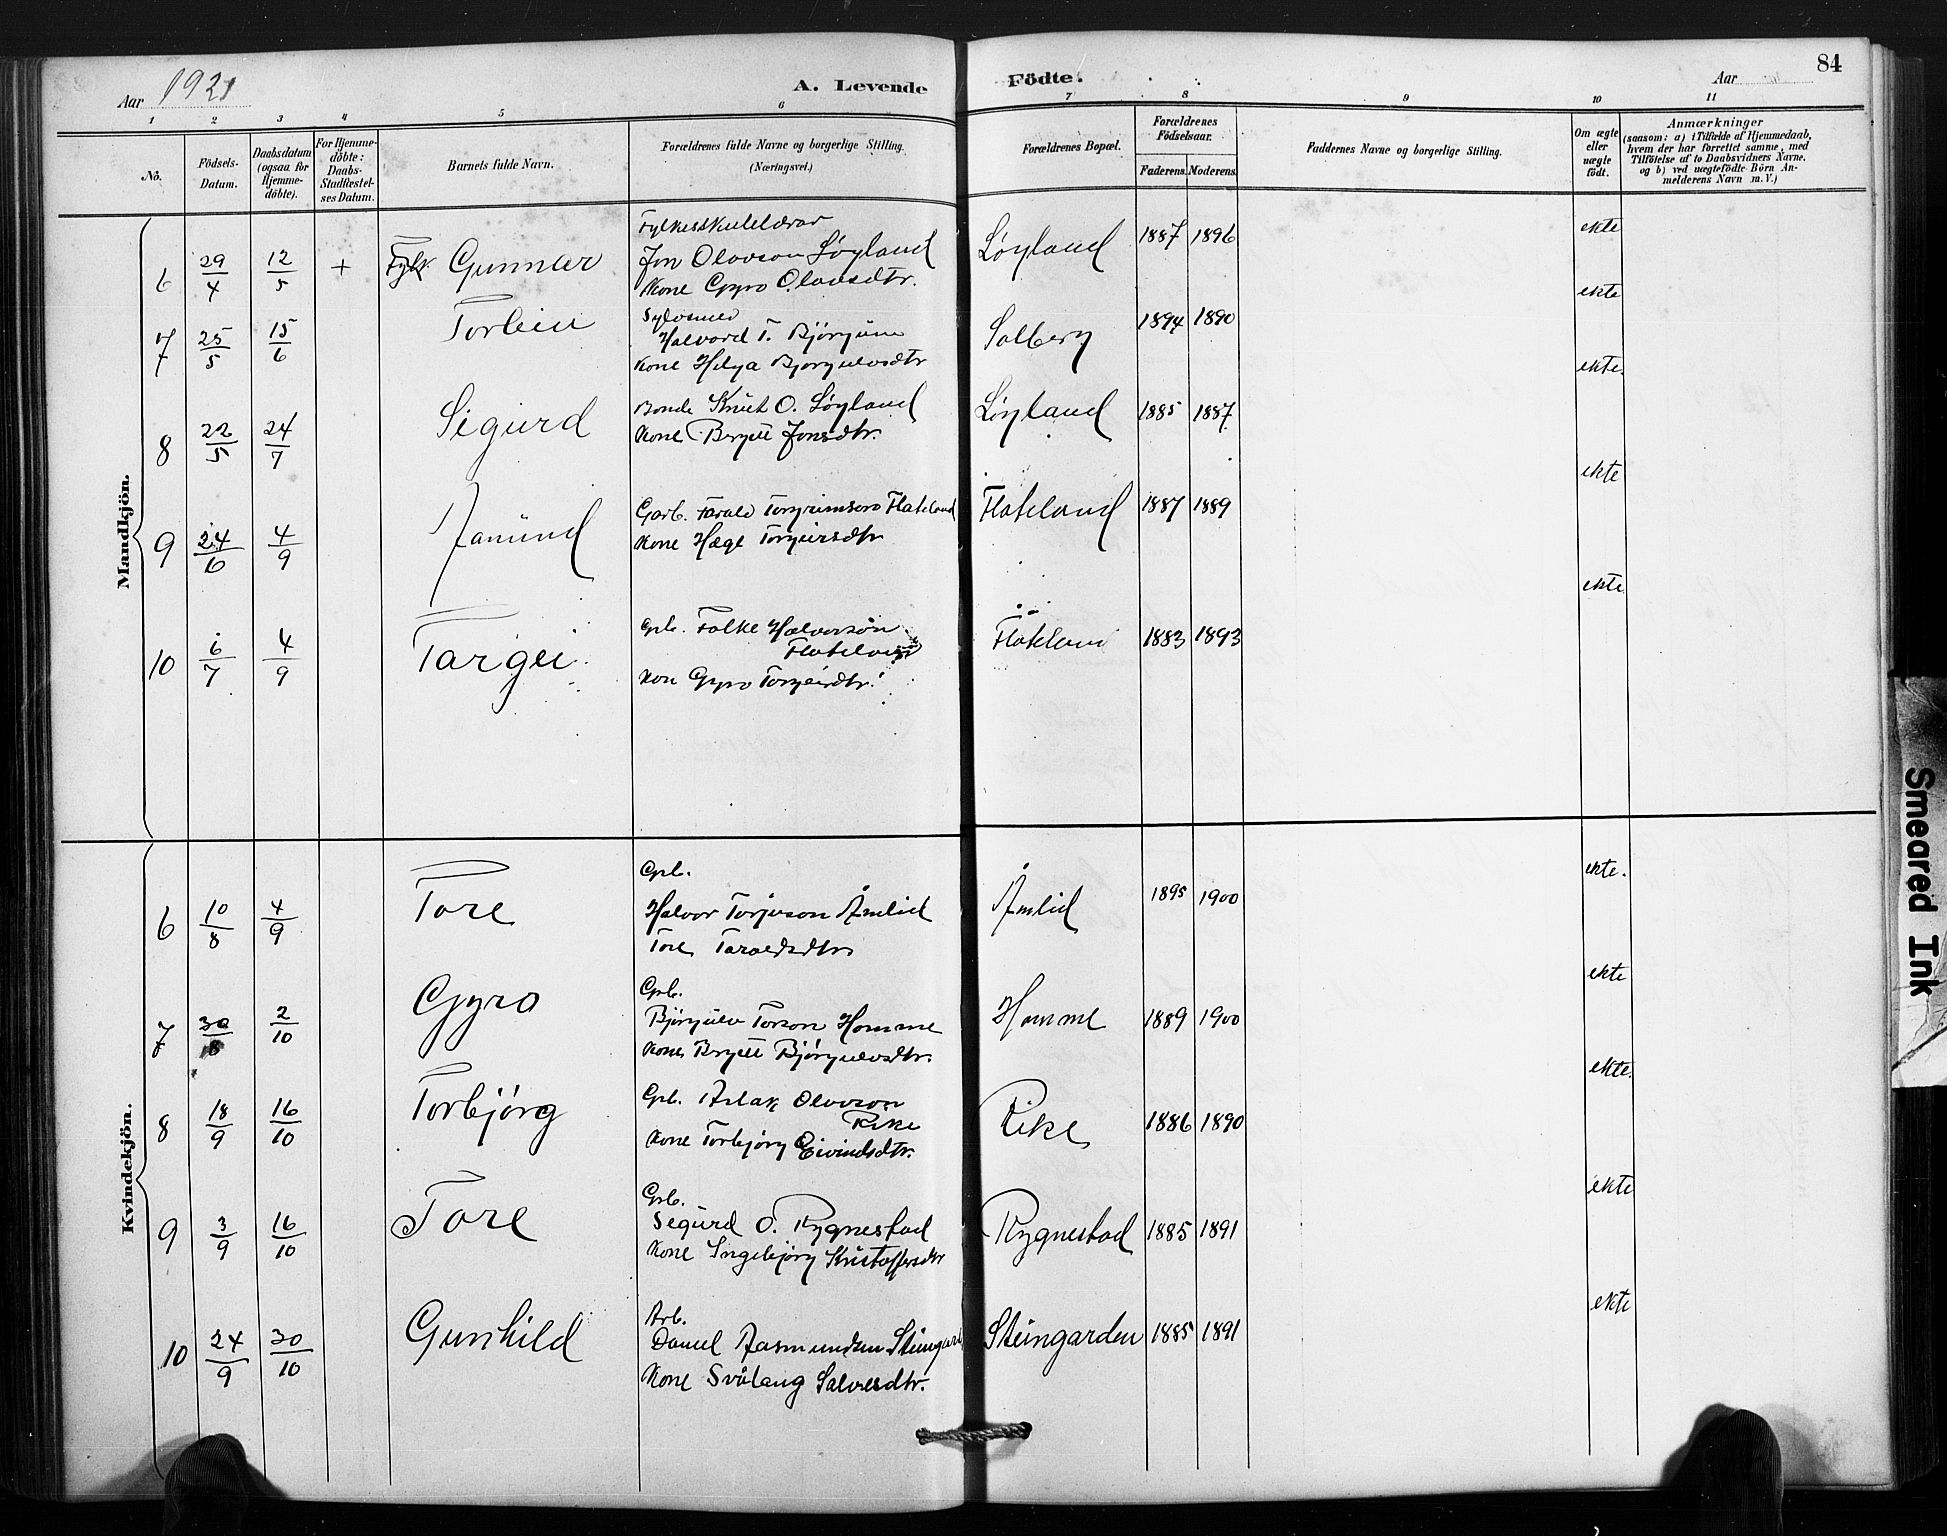 Aar 1921
A. Levende Födte.
Aar
84
1 2 3 4 5 6 7 8 9 10 11
No.
Födsels-Datum.
Daabsdatum (ogsaa for Hjemme-döbte).
For Hjemme-döbte: Daabs-Stadfæstel-ses Datum.
Barnets fulde Navn.
Forældrenes fulde Navne og borgerlige Stilling. (Næringsvei.)
Forældrenes Bopæl.
Forældrenes Födselsaar.
Faderens. Moderens.
Faddernes Navne og borgerlige Stilling.
Om ægte eller uægte födt.
Anmærkninger
(saasom: a) i Tilfælde af Hjemmedaab,
hvem der har forrettet samme, med
Tilföielse af to Daabsvidners Navne,
og b) ved uægtefödte Börn An-
melderens Navn m. V.)
Mandkjön.
Fylkesskulelærar
6 29/4 12/5 + Gunnar Jon Olavson Løyland Løyland 1887 1896 ekte
Kone Gyro Olavsdtr.
Sylvsmed
7 25/5 15/6 Torleiv Halvord T. Bjørgum Solberg 1894 1890 ekte
Kone Helga Bjorgulvsdtr
8 22/5 24/7 Sigurd Bonde Knut O. Løyland Løyland 1885 1887 ekte.
Kone Brgit Jonsdtr.
9 24/6 4/9 Aamund Garb. Tarald Torgrimson Flateland Flateland 1887 1889 ekte
Kone Hæge Torgeirsdtr
10 6/7 4/9 Targei Grb. Folke Halvorson Flateland Flateland 1883 1893 ekte
Kon Gyro Torgeirdtr.
Kvindekjön.
Grb.
6 10/8 4/9 Tore Halvor Torjuson Åmlid Åmlid 1895 1900 ekte.
Tore Taraldsdtr
Grb.
7 30/8 2/10 Gyro Bjørgulv Torson Homme Homme 1889 1900 ekte
Kone Brgit Bjørgulvsdtr.
8 18/9 16/10 Torbjörg Grb. Aslak Olovson Rike Rike 1886 1890 ekte.
Kone Torbjørg Eivindsdtr.
Grb.
9 3/9 16/10 Tore Sigurd O. Rygnestad Rygnestad 1885 1891 ekte
Kone Ingebjørg Kristoffersdtr
Arb.
10 24/9 30/10 Gunhild Daniel Rasmundsen Steingard Steingarden 1885 1891 ekte
Kone Svålaug Salvesdtr.
Smeared Ink